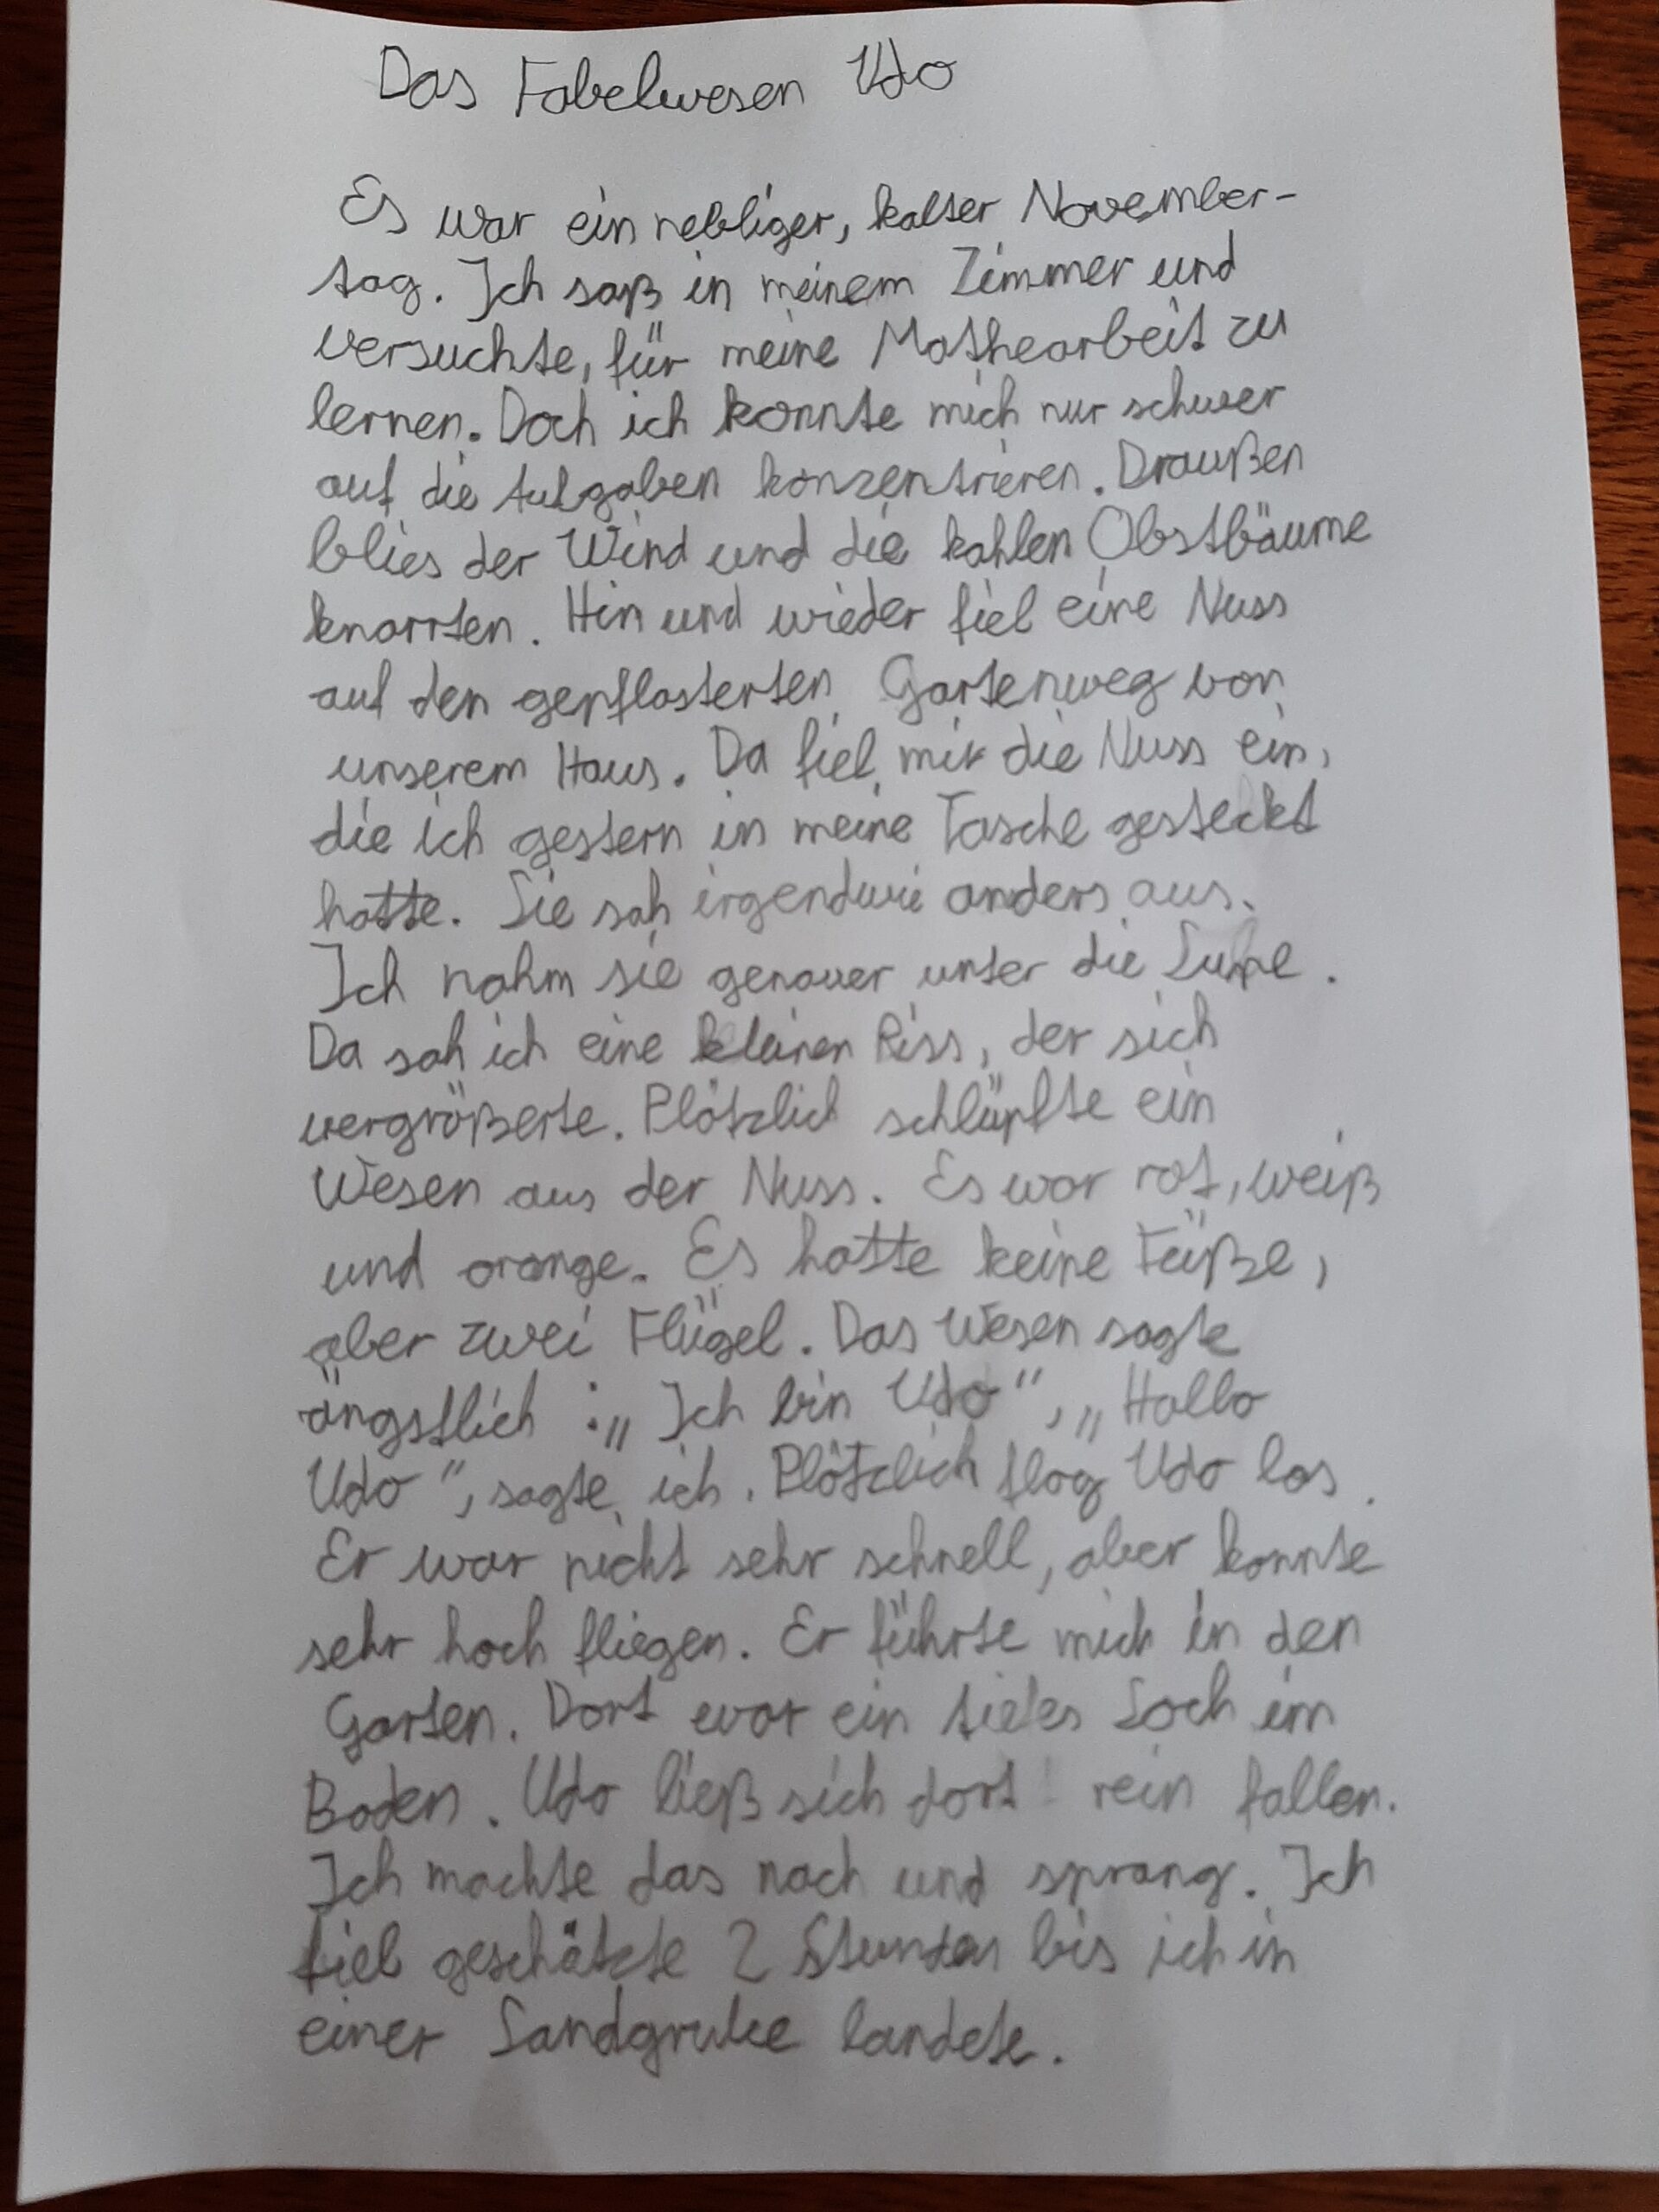 Das Fabelwesen Udo
Es war ein nebliger, kalter November-
tag. Ich saß in meinem Zimmer und
versuchte, für meine Mathearbeit zu
lernen. Doch ich konnte mich nur schwer
auf die Aufgaben konzentrieren. Draußen
blies der Wind und die kahlen Obstbäume
knarrten. Hin und wieder fiel eine Nuss
auf den gepflasterten Gartenweg von
unserem Haus. Da fiel mir die Nuss ein,
die ich gestern in meine Tasche gesteckt
hatte. Sie sah irgendwie anders aus.
Ich nahm sie genauer unter die Lupe.
Da sah ich eine kleinen Riss, der sich
vergrößerte. Plötzlich schlüpfte ein
Wesen aus der Nuss. Es war rot, weiß
und orange. Es hatte keine Füße,
aber zwei Flügel. Das Wesen sagte
ängstlich : „Ich bin Udo“, „Hallo
Udo“, sagte ich. Plötzlich flog Udo los.
Er war nicht sehr schnell, aber konnte
sehr hoch fliegen. Er führte mich in den
Garten. Dort war ein tiefes Loch im
Boden. Udo ließ sich dort rein fallen.
Ich machte das nach und sprang. Ich
fiel geschätzte 2 Stunden bis ich in
einer Sandgrube landete.